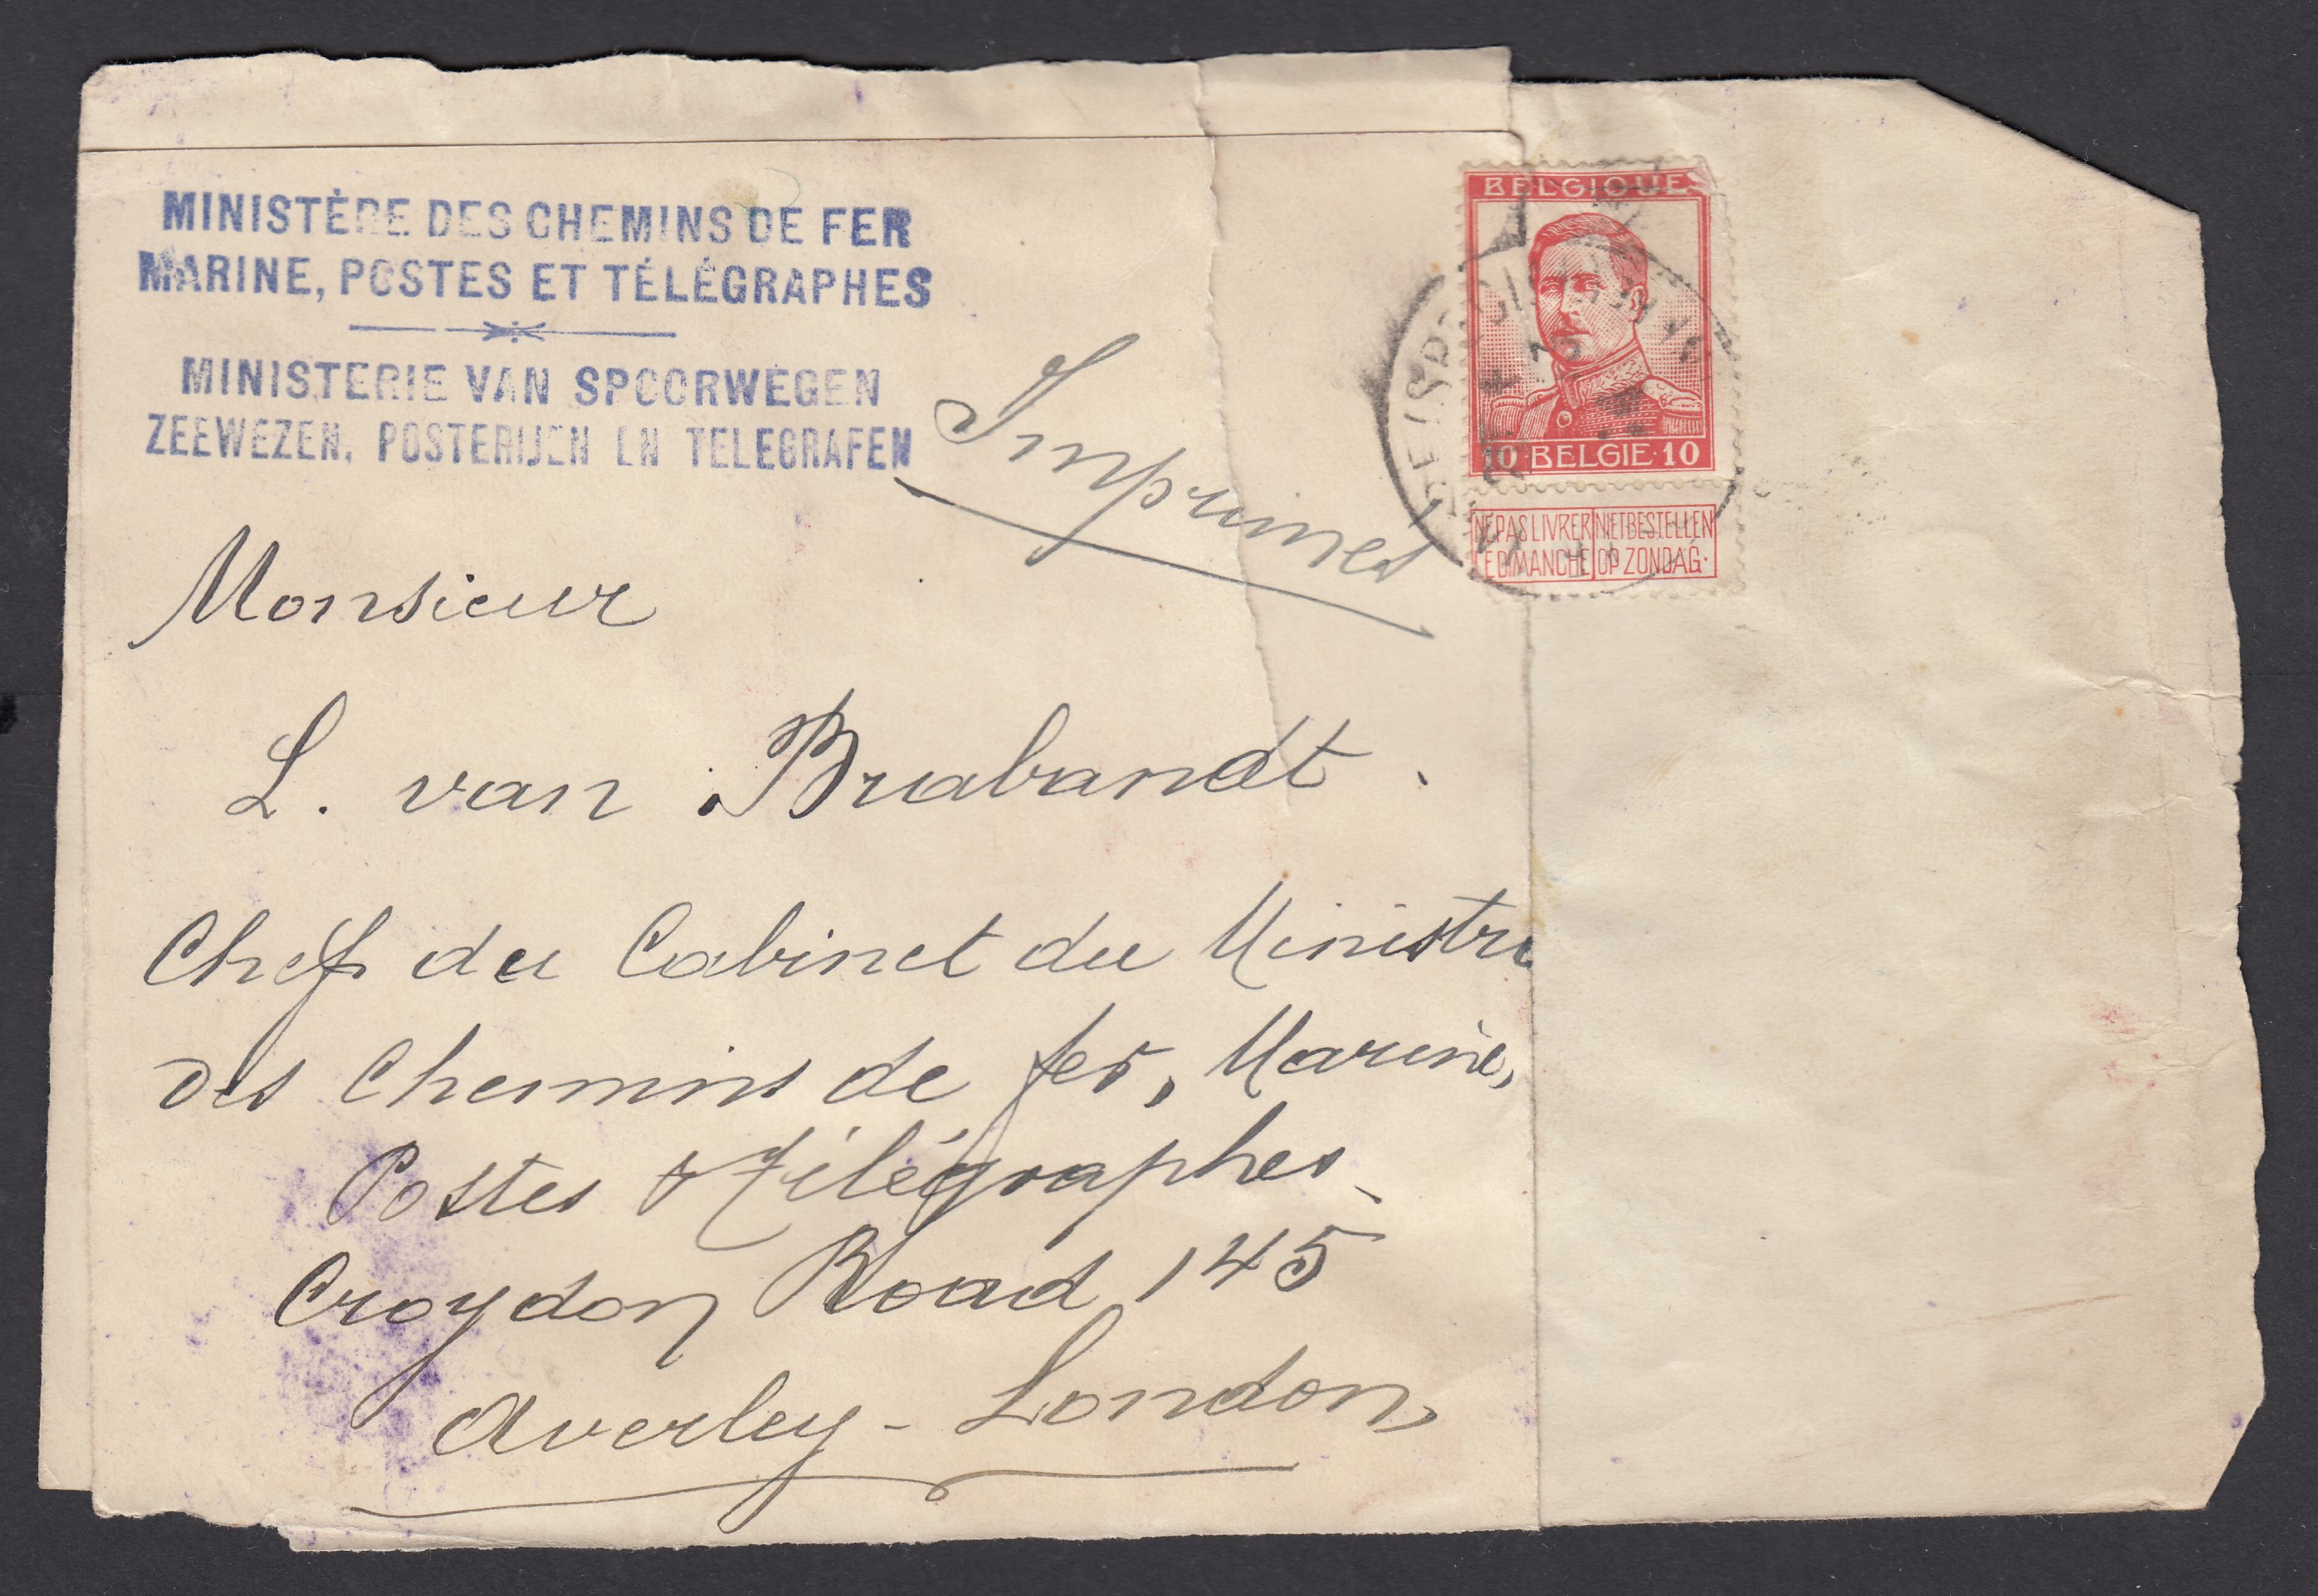 MINISTÈRE DES CHEMINS DE FER
MARINE, POSTES ET TÉLÉGRAPHES
MINISTERIE VAN SPOORWEGEN
ZEEWEZEN, POSTERIJEN EN TELEGRAFEN
Imprimés
BELGIQUE
10 BELGIE 10
NE PAS LIVRER LE DIMANCHE
NIET BESTELLEN OP ZONDAG.
Monsieur
L. van Brabandt
Chef du Cabinet du Ministre
des Chemins de fer, Marine,
Postes & Télégraphes
Croydon Road 145
Averley - London